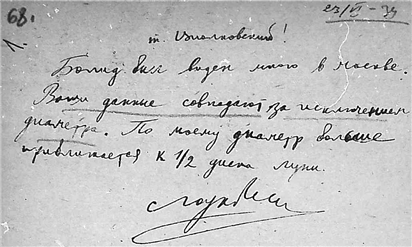 68.
23/VI - 33
1.
т. Циолковский!
Болид был виден мною в Москве.
Ваши данные совпадают, за исключением
диаметра. По моему диаметр больше
приближается к 1/2 диска луны.